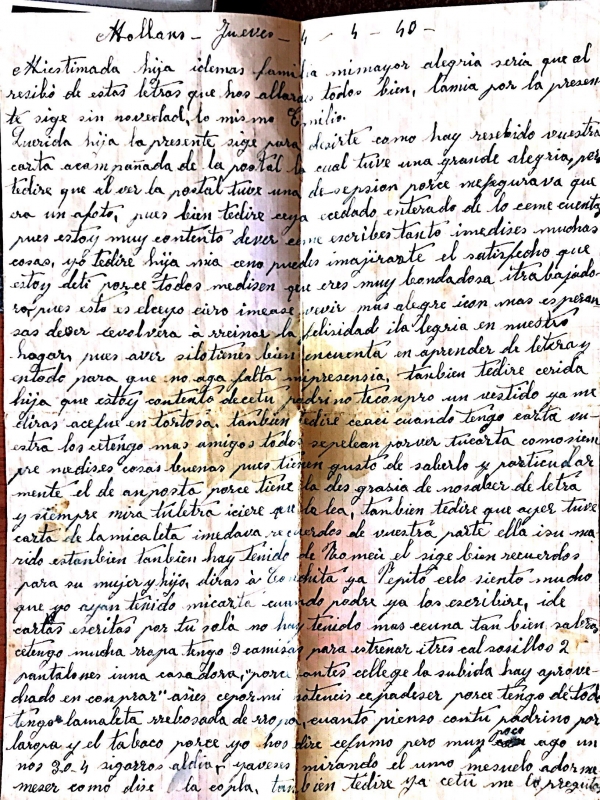 Mollans - Jueves - 4 - 4 - 40 -
Miestimada hija idemas familia mimayor alegria seria que al
resibo de estas letras que hos allarais todos bien, lamia por la presen
te sige sin novedad, lo mismo Emilio.
Querida hija la presente sige para desirte como hay resebido vuestra
carta acompañada de la postal la cual tuve una grande alegria, pero
tedire que al ver la postal tuve una desepsion porce mefegurava que
era un afoto, pues bien tedire ceya cedado enterado de lo ceme cuentas
pues estoy muy contento dever como escribes tanto imedises muchas
cosas, yo tedire hija mia ceno puedes imajirarte el satisfecho que
estoy deti porce todos medisen que eres muy bondadosa itrabajado
ra, pues esto es elceyo ciro imease vivir mas alegre icon mas esperan
sas dever cevolvira a rreinar la felisidad ila legria en nuestro
hogar, pues aver silotienes bien encuenta en aprender de letera y
entodo para que no aga falta mipresensia, tanbien tedire cerida
hija que estoy contento decetu padrino tecompro un vestido ya me
diras acefue en tortosa, tanbien tedire ceaci cuando tengo carta vu-
estra los cetengo mas amigos todos sepelean porver tucarta comosiem
pre medises cosas buenas pues tienen gusto de saberlo y particular
mente el de anposta porce tiene la des grasia de nosaber de letra
y siempre mira tuletra iciere que la lea, tanbien tedire que ayer tuve
carta de lamicaleta imedava recuerdos de vuestra parte ella isu ma-
rido estanbien tanbien hay tenido de Romeu el sige bien recuerdos
para su mujer y hijo, diras a Conchita ya Pepito celo siento mucho
que no ayan tenido micarta cuando podre ya los escribire, ide
cartas escritas por tu sola no hay tenido mas ceuna tan bien sabras
cetengo mucha rropa tengo 3 camisas para estrenar itres calsosillos 2
pantalones iuna casadora, "porce antes cellege la subida hay aprove-
chado en conprar" asies cepormi notencis ce padeser porce tengo de todo
tengo lamaleta rrebosada de rropa, cuanto pienso contu padrino por
laropa y el tabaco porce yo hos dire cefumo pero muy poco ago un
nos 3 o 4 sigarros aldia, yaveses mirando el umo mesuelo adorme
meser como dise la copla, tanbien tedire ya cetu me lo pregutas